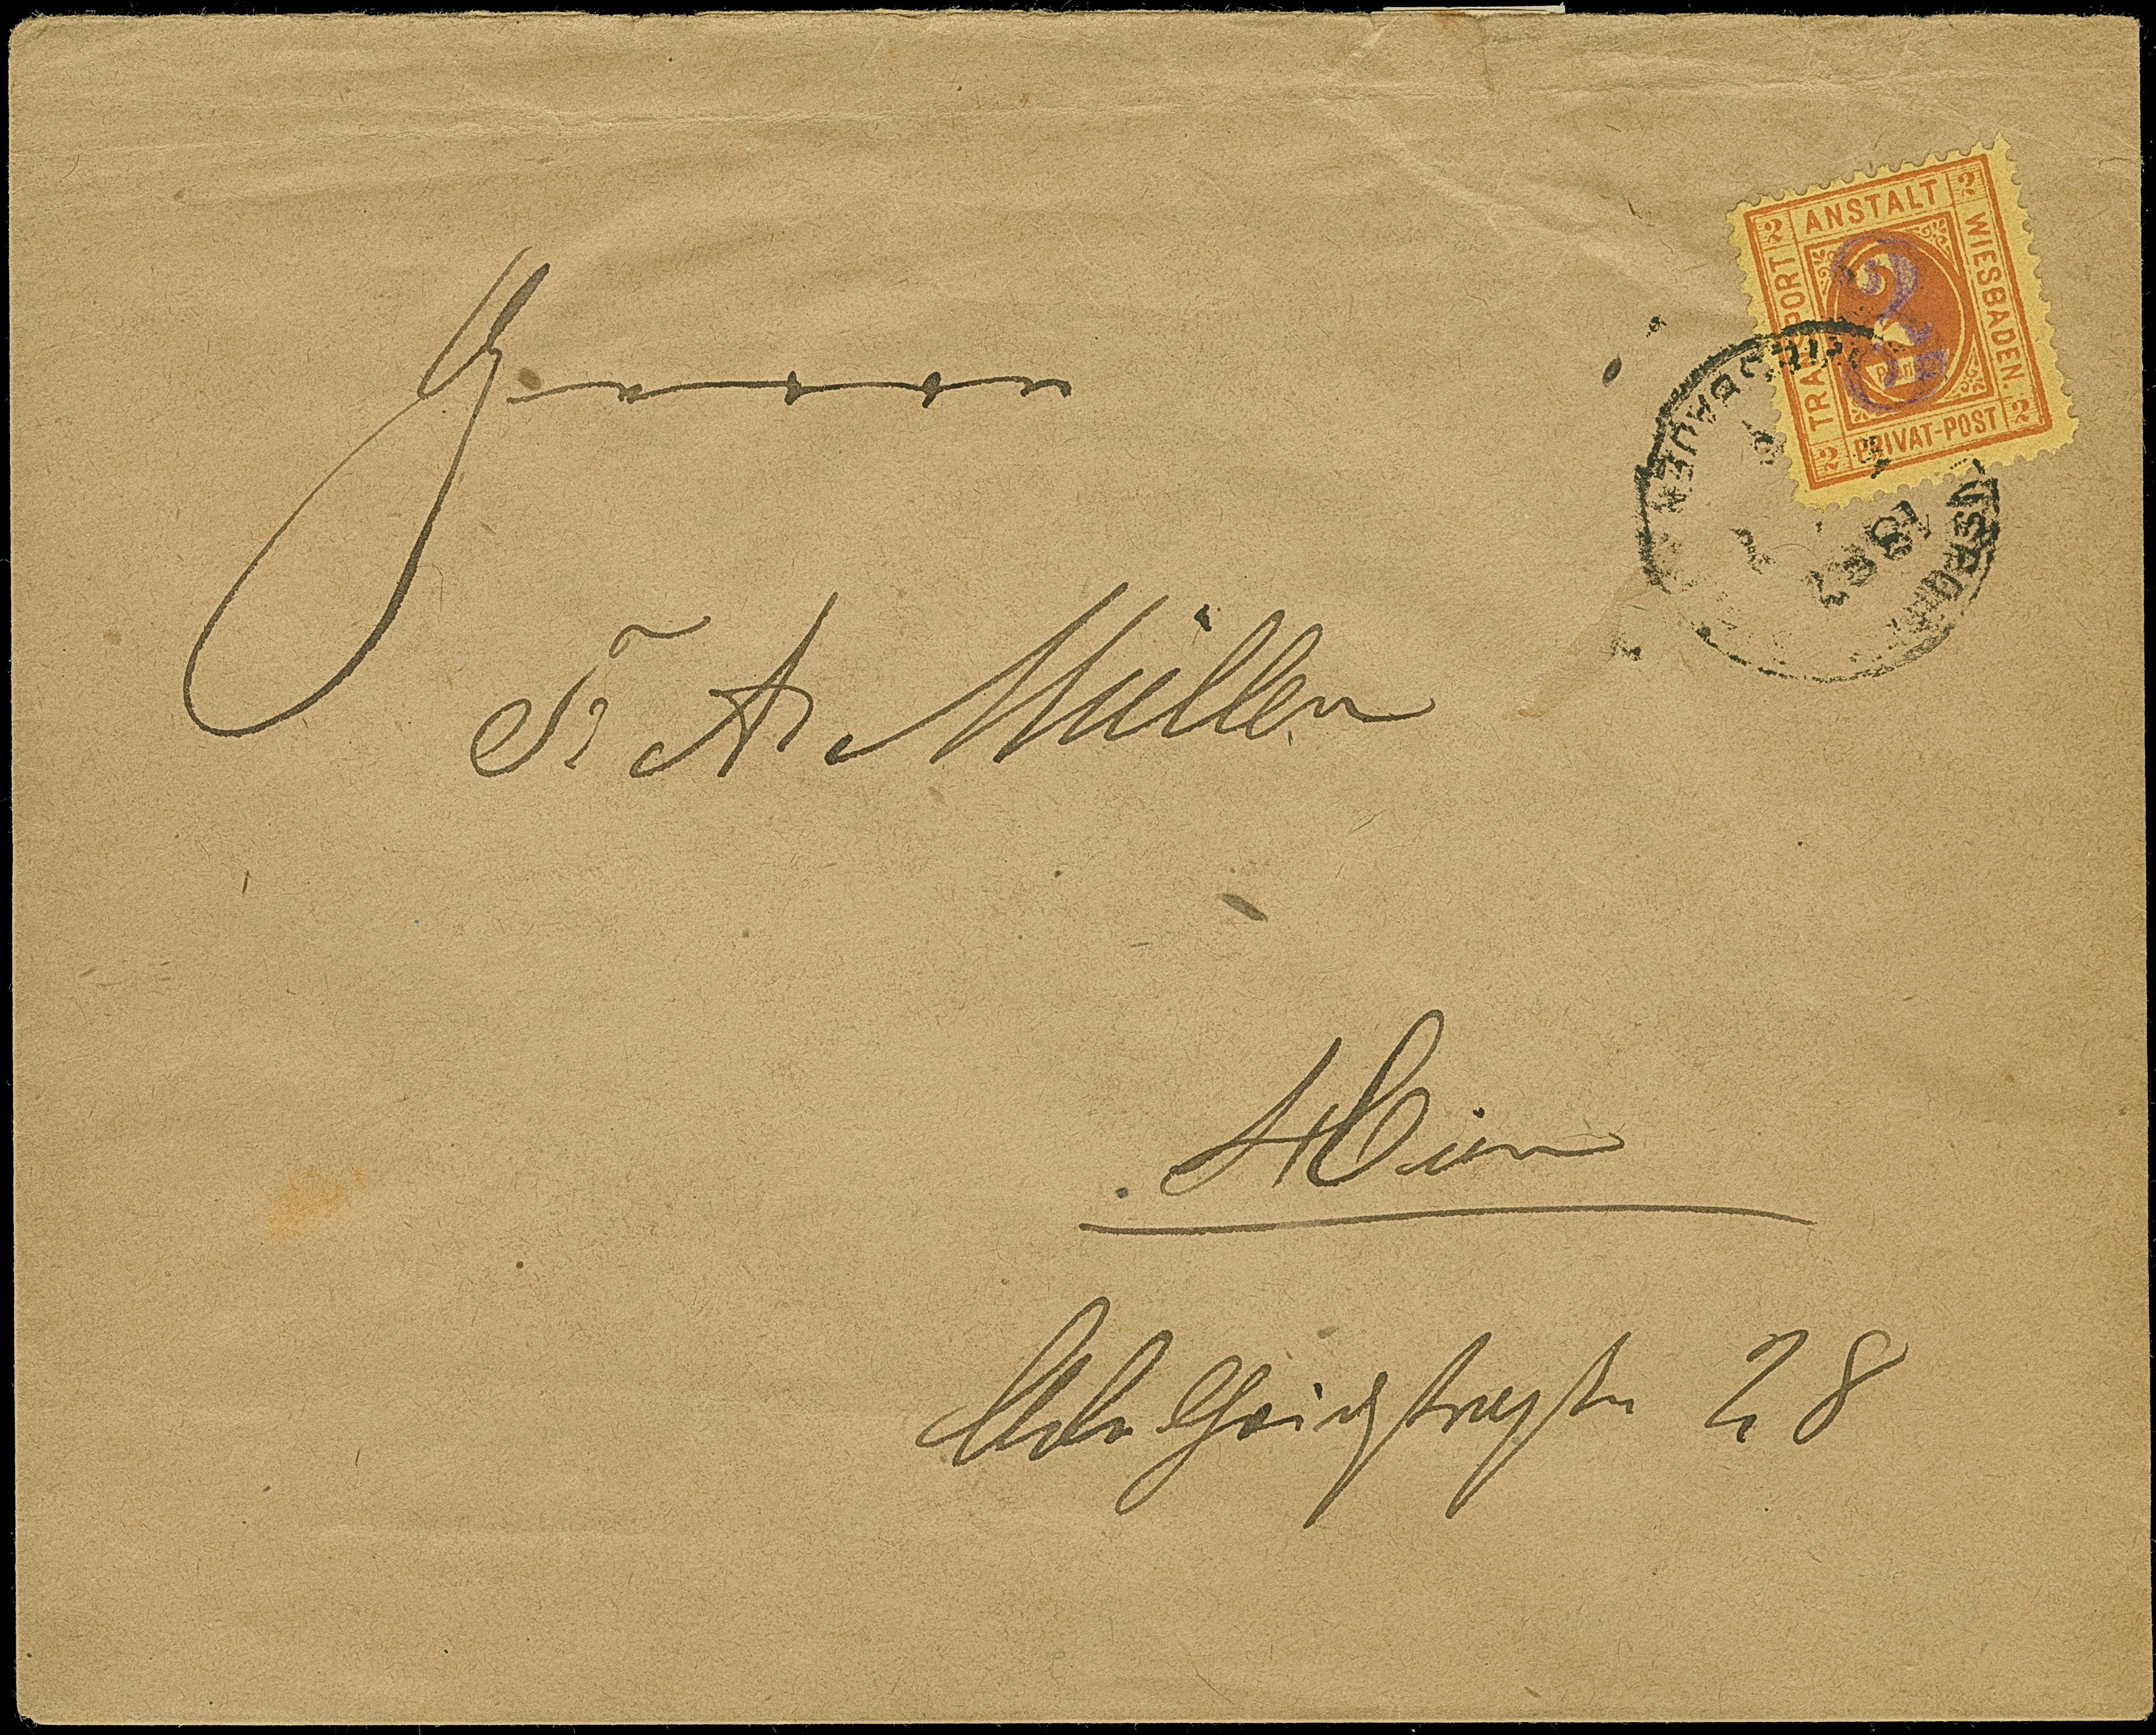 2 ANSTALT 2
TRANSPORT
WIESBADEN.
2
2 PRIVAT-POST 2
WIESBADEN
Herrn
Fr A Müller
Hier
Adelheidstraße 28